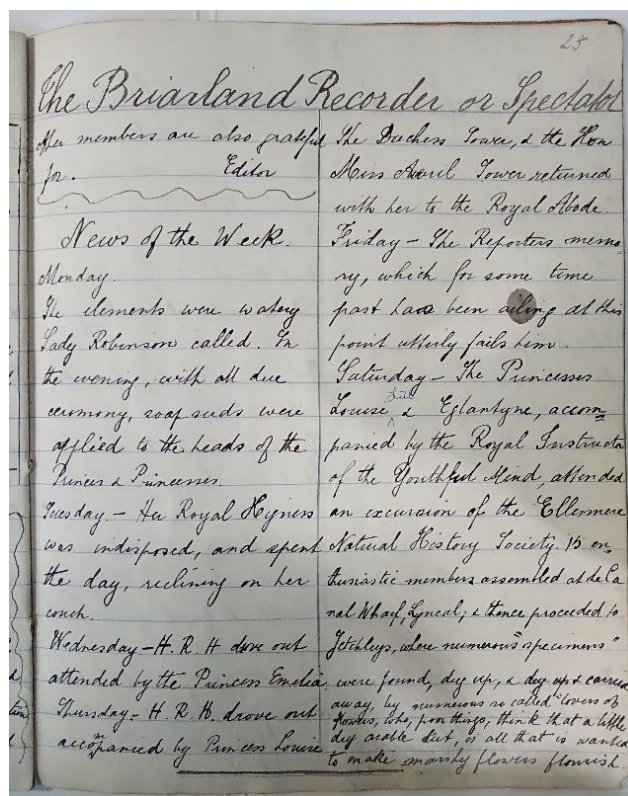 25
The Briarland Recorder or Spectator
Her members are also grateful
for. Editor
News of the Week.
Monday.
The elements were watery
Lady Robinson called. In
the evening, with all due
ceremony, soap suds were
applied to the heads of the
Princes & Princesses.
Tuesday – Her Royal Hyness
was indisposed, and spent
the day, reclining on her
couch.
Wednesday – H. R. H drove out
attended by the Princess Emelia.
Thursday – H. R. H. drove out
accompanied by Princess Louise
The Duchess Tower, & the Hon
Miss Avril Tower returned
with her to the Royal Abode.
Friday – The Reporters memo-
ry, which for some time
past has been ailing at this
point utterly fails him.
Saturday – The Princesses
Louise & Eglantyne, accom=
panied by the Royal Instructor
of the Youthful Mind, attended
an excursion of the Ellesmere
Natural History Society. 15 en=
thusiastic members assembled at the Ca
nal Wharf, Lyneal; & thence proceeded to
where numerous "specimens"
were found, dug up, & dug up & carried
away, by numerous so called "lovers of
flowers, who, poor things, think that a little
dry arable dirt, is all that is wanted
to make marshy flowers flourish.